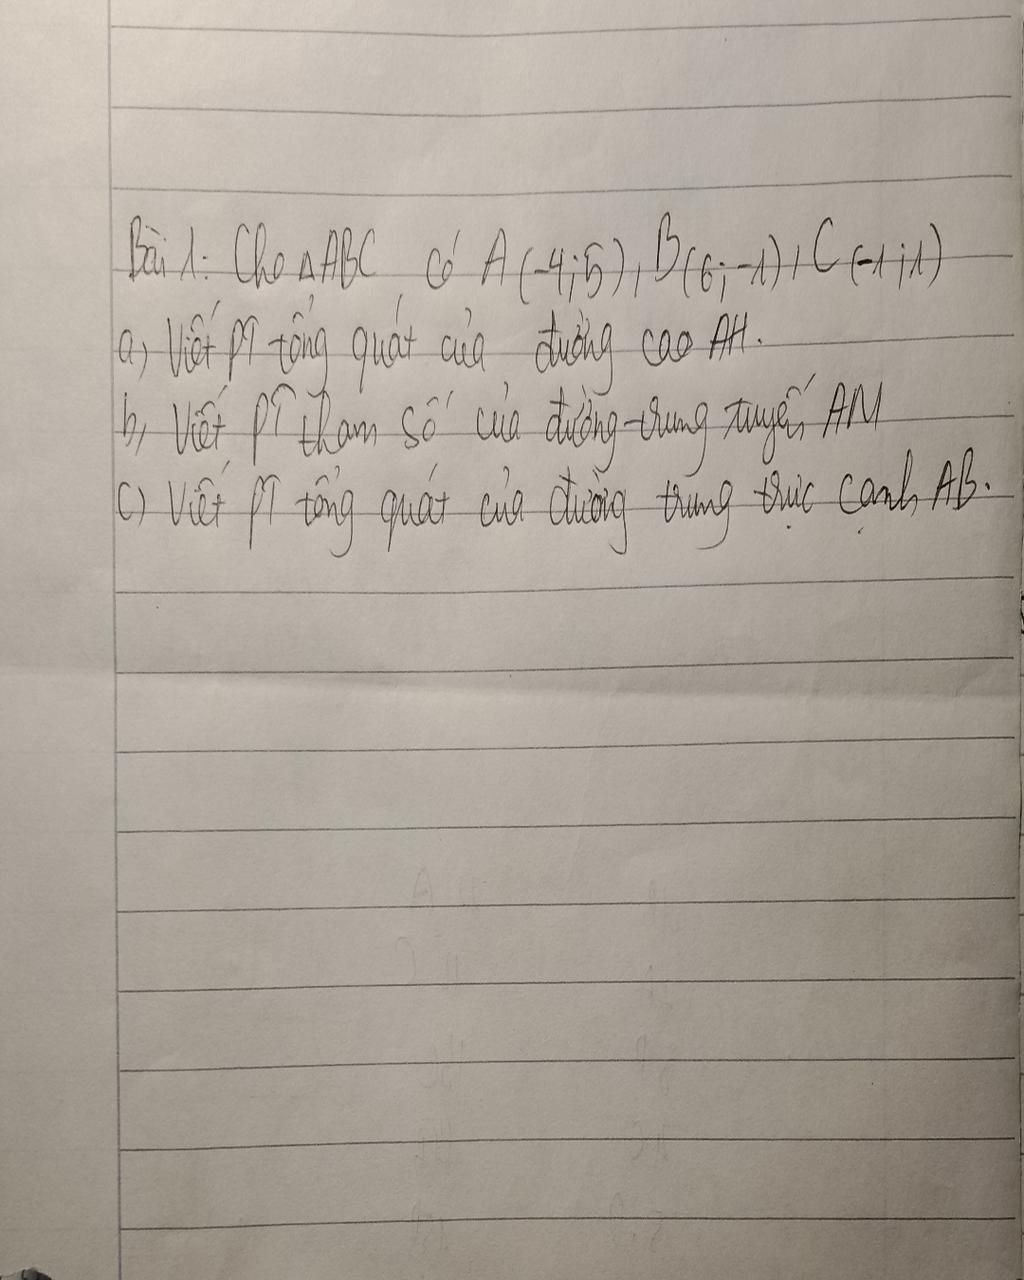 Bài 1: Cho △ABC có A(-4;5), B(6;-1), C(-1;1)
a) Viết PT tổng quát của đường cao AH.
b, Viết PT tham số của đường trung tuyến AM
c) Viết PT tổng quát của đường trung trực cạnh AB.